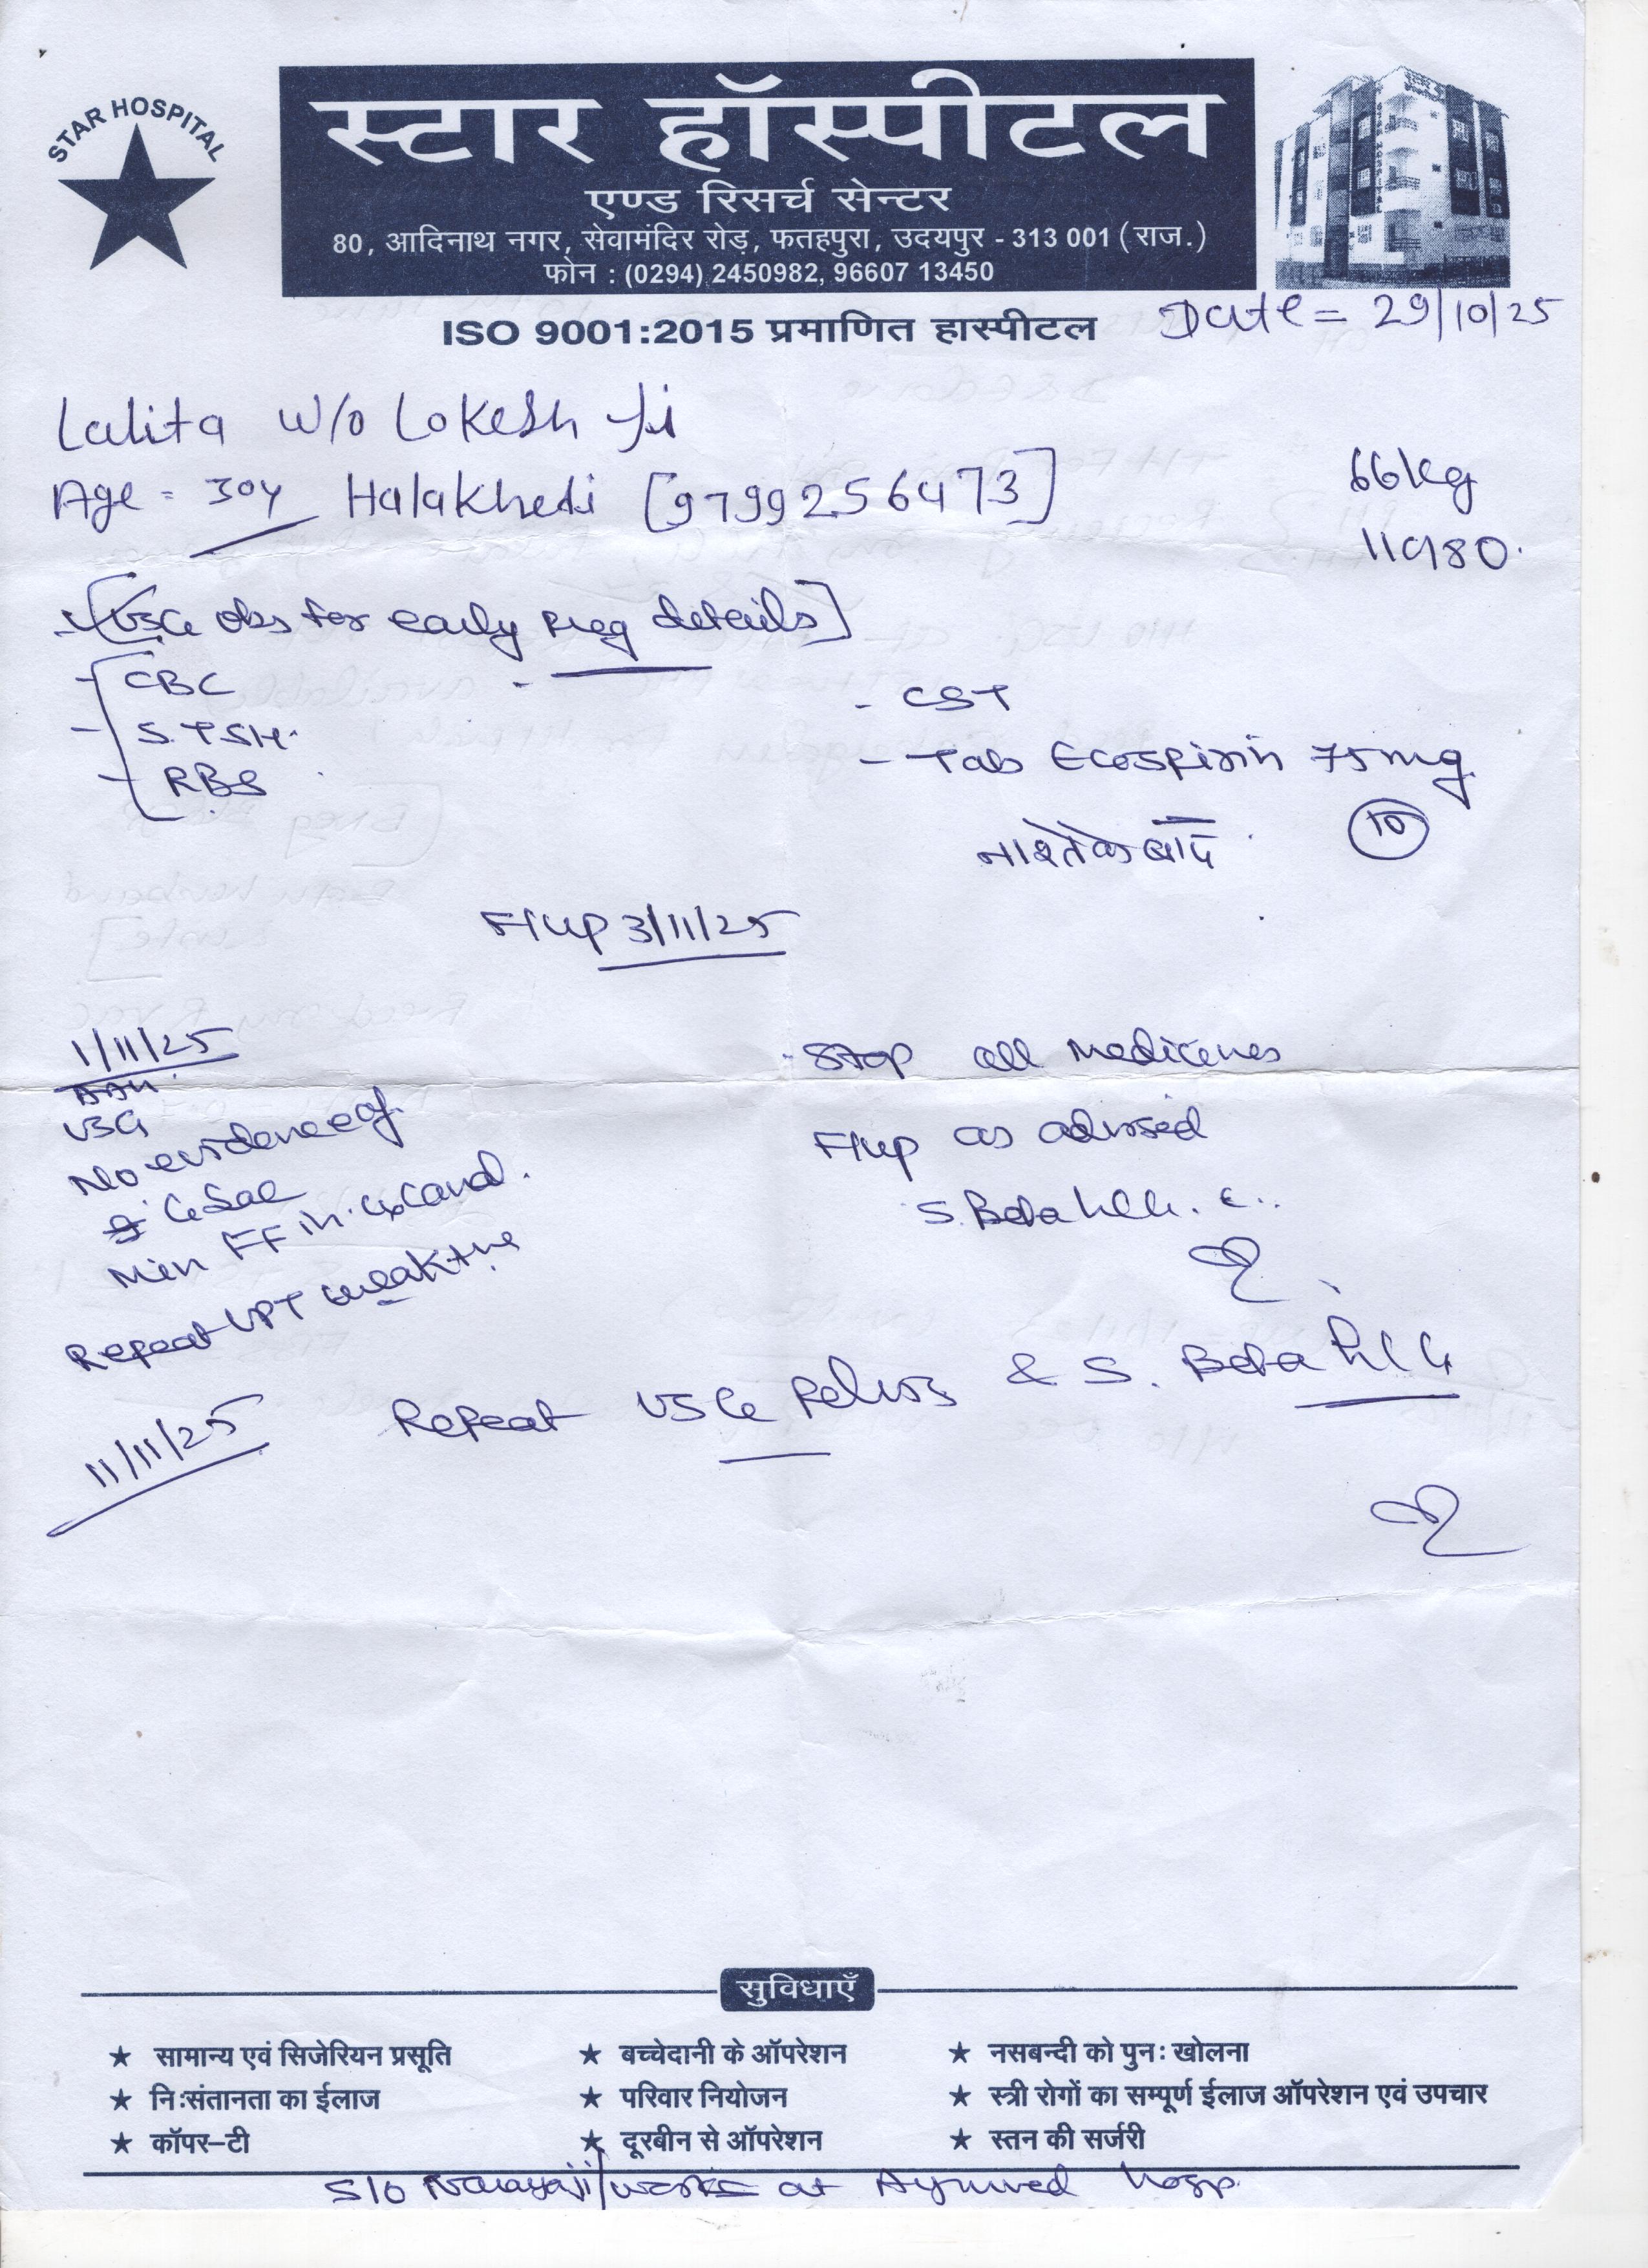 STAR HOSPITAL
स्टार हॉस्पीटल
एण्ड रिसर्च सेन्टर
80, आदिनाथ नगर, सेवामंदिर रोड़, फतहपुरा, उदयपुर - 313 001 (राज.)
फोन : (0294) 2450982, 96607 13450
ISO 9001:2015 प्रमाणित हास्पीटल
Date = 29/10/25
Lalita w/o Lokesh Ji
Age = 30y Halakhedi [9799256473]
66kg
110/80.
- [USG obs for early preg details]
- CBC
- S. TSH.
- RBS
- CST
- Tab Ecospirin 75mg
नाश्ते के बाद
10
F/up 3/11/25
1/11/25
USG
No evidence of
G Sac
Min FF in cx canal.
Repeat UPT weak +ve
- Stop all medicines
F/up as advised
S. Beta hCG.
11/11/25
Repeat USG Pelvis & S. Beta hCG
सुविधाएँ
★ सामान्य एवं सिजेरियन प्रसूति
★ बच्चेदानी के ऑपरेशन
★ नसबन्दी को पुनः खोलना
★ निःसंतानता का ईलाज
★ परिवार नियोजन
★ स्त्री रोगों का सम्पूर्ण ईलाज ऑपरेशन एवं उपचार
★ कॉपर-टी
★ दूरबीन से ऑपरेशन
★ स्तन की सर्जरी
S/o works at Ayurved hosp.